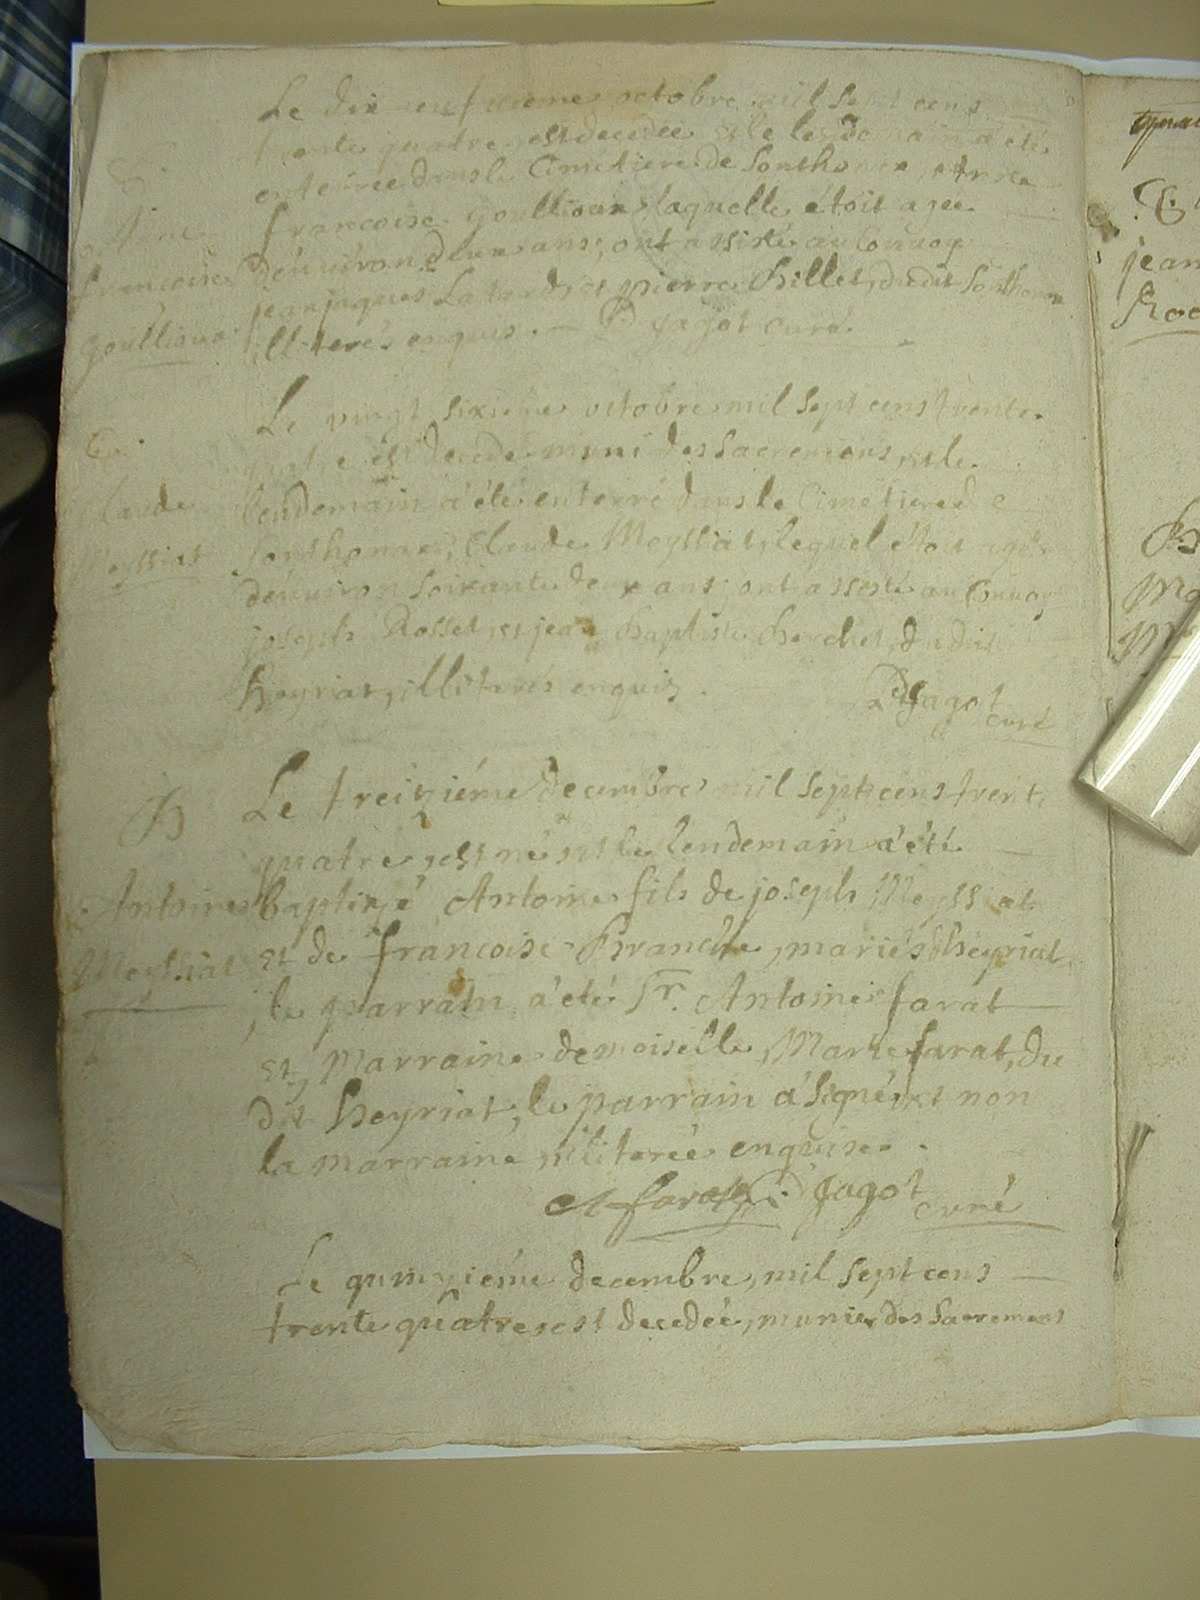 Le dix neufvieme octobre mil sept cens
trente quatre est decedée et le lendemain a eté
enterrée dans le Cimetiere de Sonthonax, Anne
francoise goullioux laquelle étoit agée
d'énviron deux ans, ont assisté au Convoy
jean jaques Latard, et pierre Billet, dudit Sonthonax
illiterés enquis. P. Jagot curé
E.
Anne
francoise
goullioux
Le vingt sixieme octobre mil sept cens trente
quatre est decedé muni des Sacremens, et le
lendemain a'été enterré dans le Cimetiere de
Sonthonax, Claude Meyssiat, lequel étoit agé
d'énviron soixante deux ans; ont assisté au Convoy
joseph Rosset, et jean baptiste berchet, du dit
heyriat, illiterés enquis. P Jagot
curé
E.
Claude
Meyssiat
Le treiziéme decembre mil sept cens trente
quatre, est né et le lendemain a'été
baptizé Antoine fils de joseph Meyssiat
et de francoise branche, mariés d'heyriat
le parrain a'eté Sr. Antoine farat
et, Marraine demoiselle, Marie farat, du
dit heyriat, le parrain a'signé, et non
la marraine illiterée enquise.
A farat P. Jagot
curé
B
Antoine
Meyssiat
Le quinziéme decembre, mil sept cens
trente quatre, est decedée, munie des Sacremens
jean